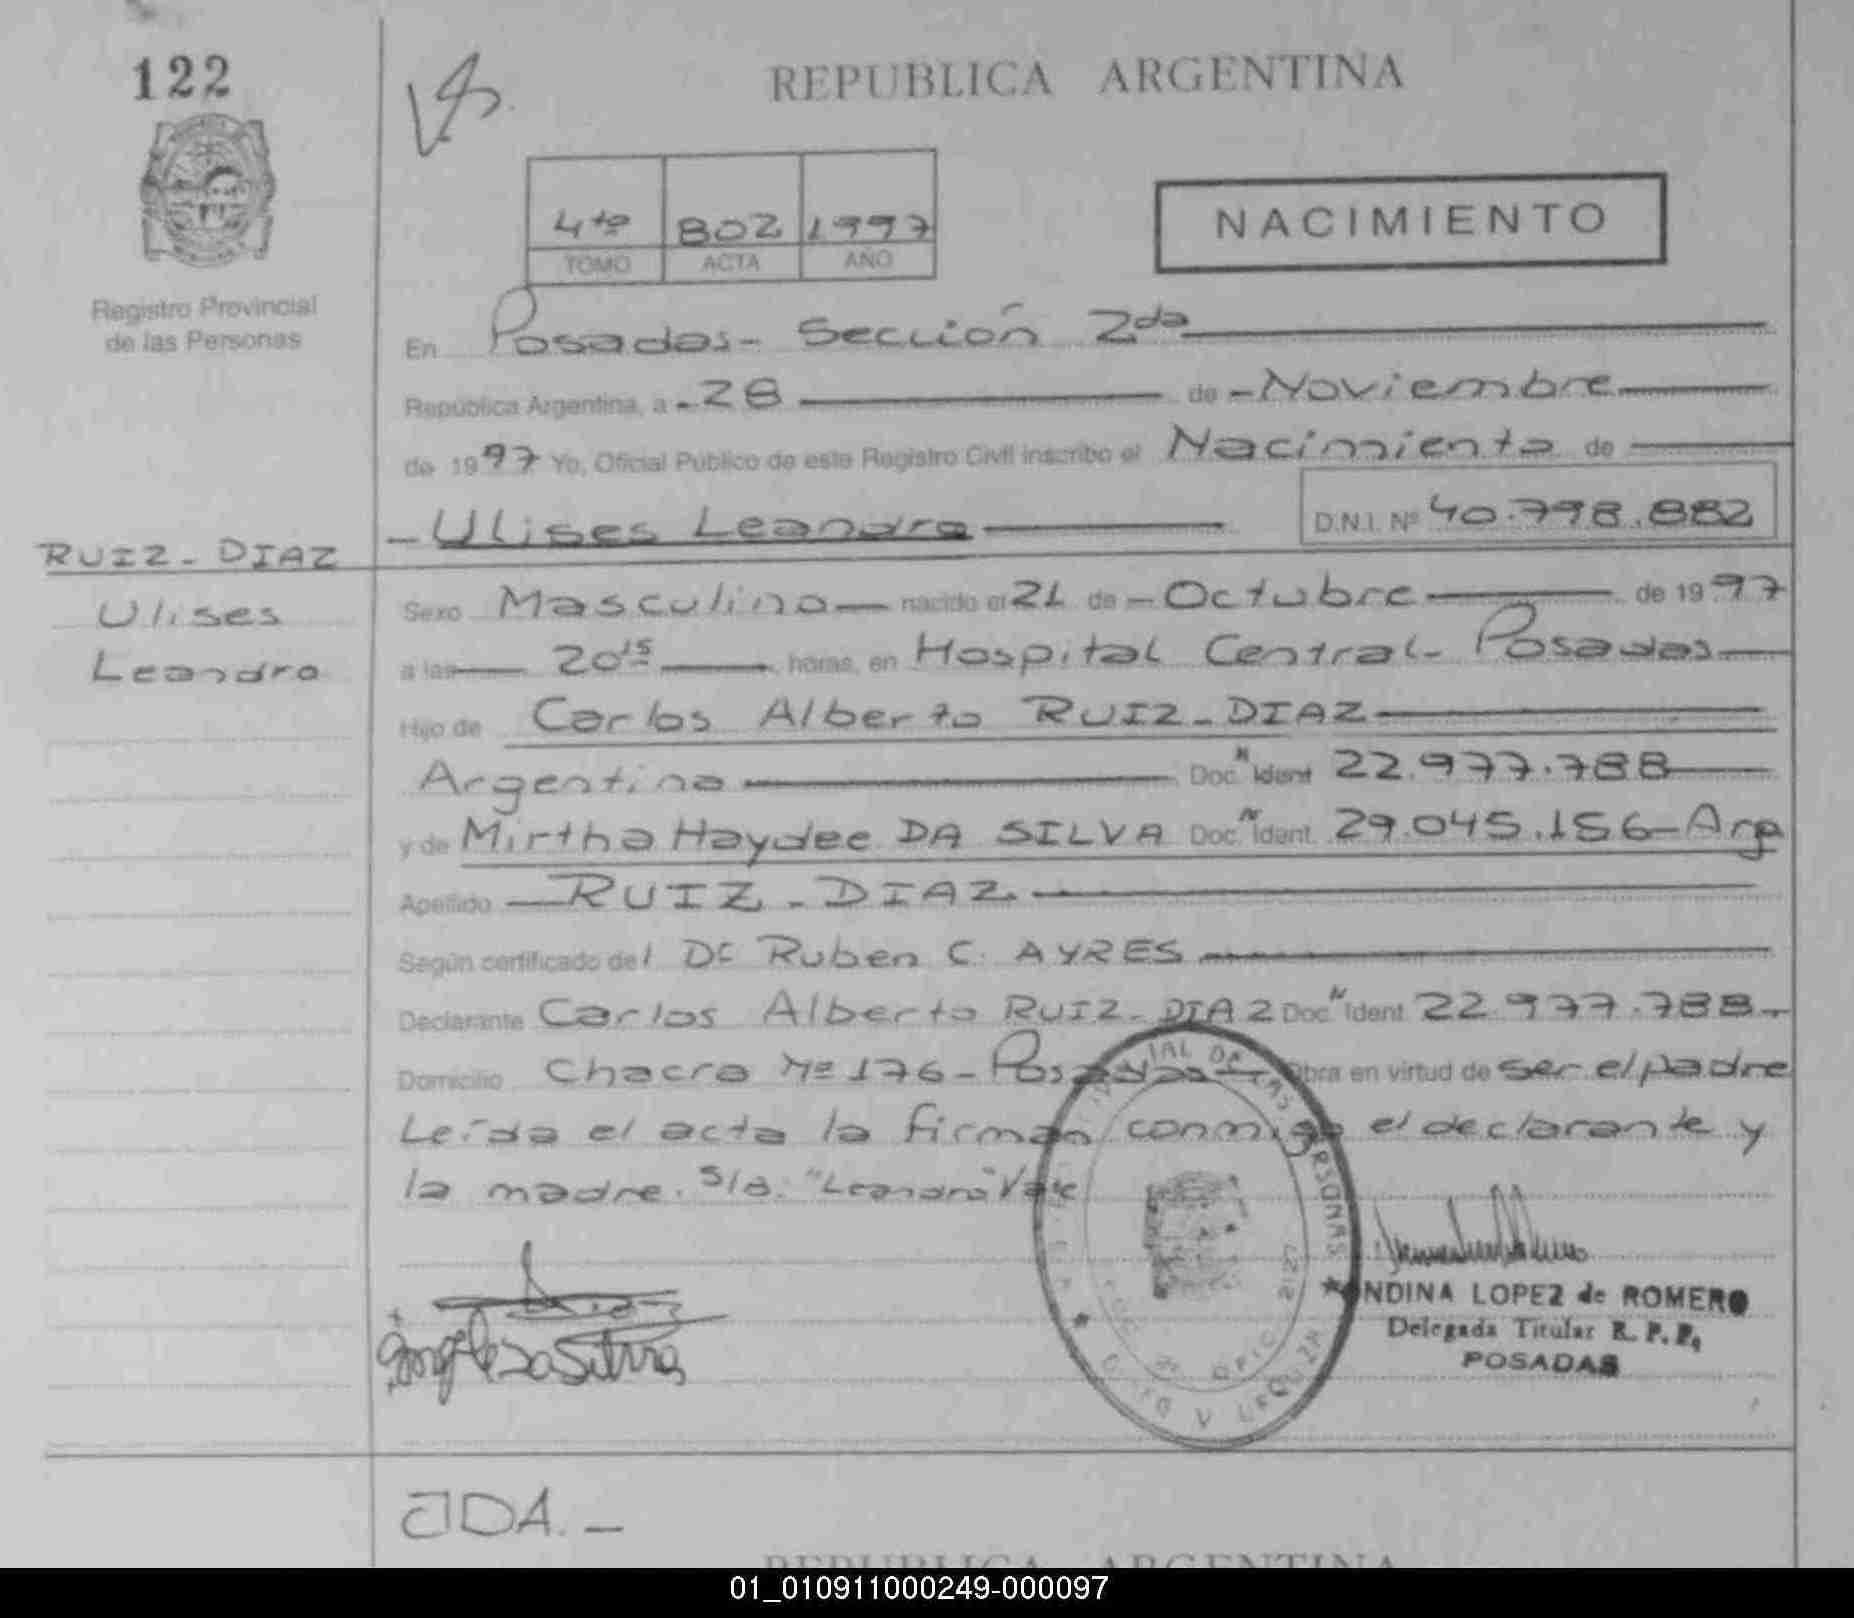 122
REPUBLICA ARGENTINA
4to 802 1997
TOMO ACTA AÑO
NACIMIENTO
Registro Provincial
de las Personas
En Posadas- Sección 2da
República Argentina, a - 28 de - Noviembre
de 1997 Yo, Oficial Público de este Registro Civil inscribo el Nacimiento de
- Ulises Leandro D.N.I. Nº 40.798.882
RUIZ - DIAZ
Ulises
Leandro
Sexo Masculino nacido el 21 de - Octubre de 1997
a las 20 15 horas, en Hospital Central - Posadas
Hijo de Carlos Alberto RUIZ - DIAZ
Argentina Doc. N Ident 22.977.788
y de Mirtha Haydee DA SILVA Doc. N Ident. 29.045.156 - Arg
Apellido RUIZ - DIAZ
Según certificado del Dr Ruben C. AYRES
Declarante Carlos Alberto RUIZ - DIAZ Doc. N Ident 22.977.788 -
Domicilio Chacra Nº 176 - Posadas Obra en virtud de ser el padre
Leída el acta la firman conmigo el declarante y
la madre. S/B. "Leandro" Vale
NDINA LOPEZ de ROMERO
Delegada Titular R. P. P.
POSADAS
JDA. -
REPUBLICA ARGENTINA
01_010911000249-000097